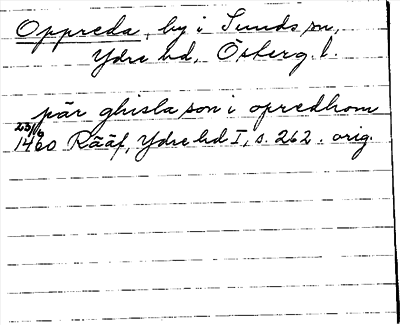 Oppreda, by i Sunds sn,
Ydre hd, Österg. l.
pär ghisla son i opredhom
1460 Rääf, Ydre hd I, s. 262. orig.